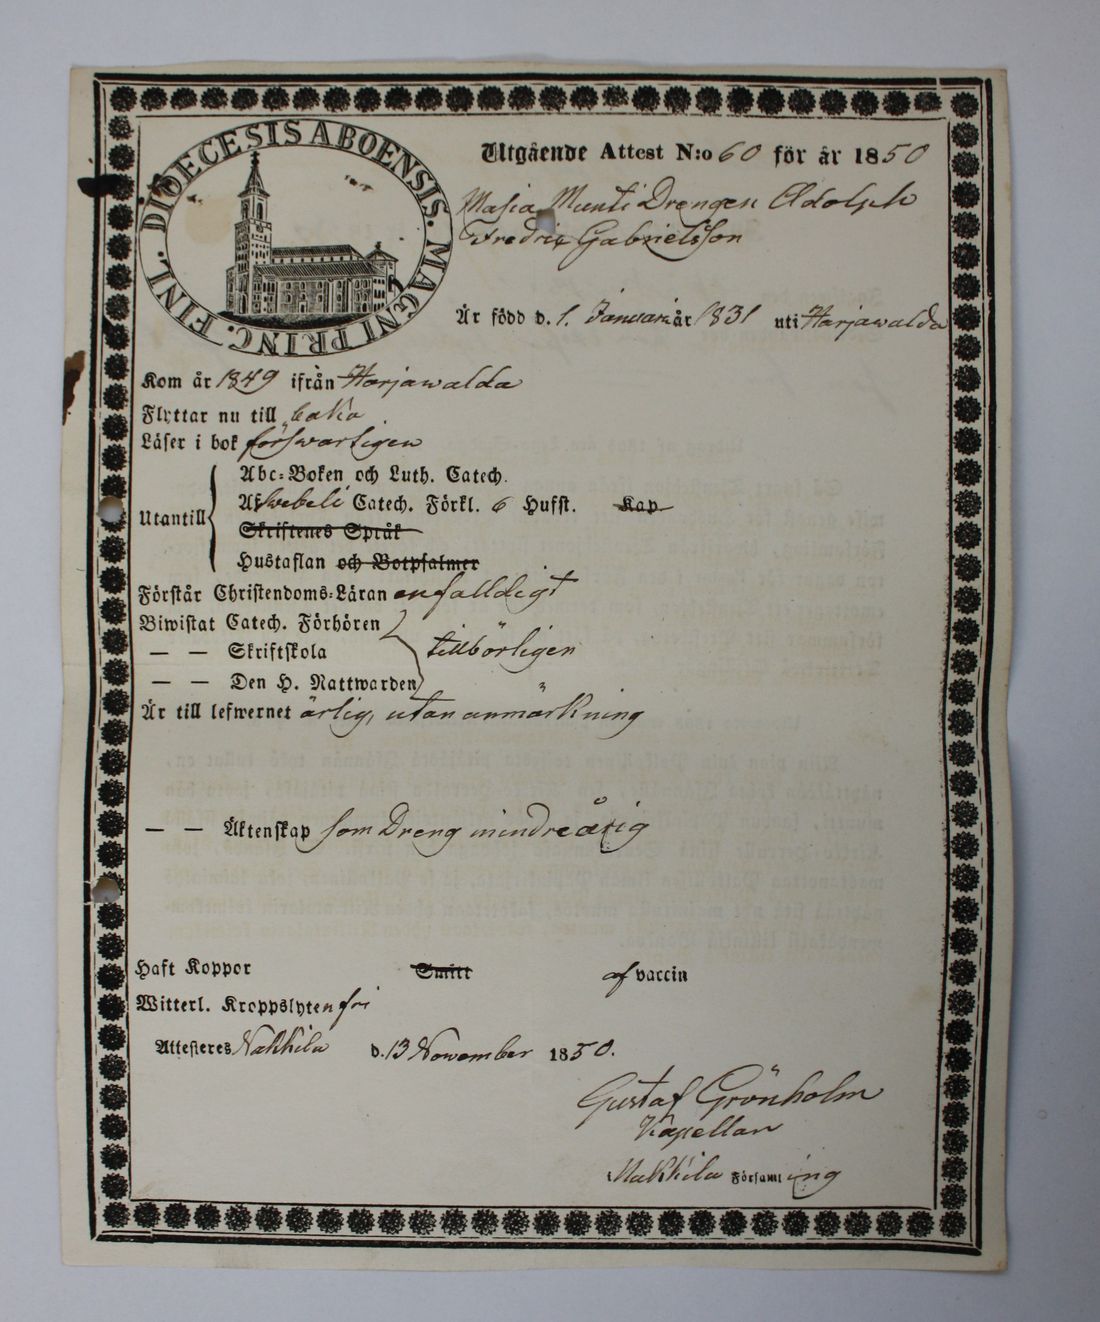 DIOECESIS ABOENSIS. MAGNI PRINC. FINL.
Utgående Attest N:o 60 för år 1850
Drengen Adolph
Fredric Gabrielsson
Är född d. 1. Januarii år 1831 uti Harjawalda
Kom år 1849 ifrån Harjawalda
Flyttar nu till baka
Läser i bok förswarligen
Abc-Boken och Luth. Catech.
Utantill Af Swebeli Catech. Förkl. 6 Hufst. Kap
Skriftenes Språk
Hustaflan och Botpsalmer
Förstår Christendoms-Läran enfalldigt
Biwistat Catech. Förhören
— — Skriftskola tillbörligen
— — Den H. Nattwarden
Är till lefwernet ärlig, utan anmärkning
— — Äktenskap som Dreng mindreårig
Haft Koppor Smitt af vaccin
Witterl. Kroppslyten fri
Attesteres Nakkila d. 13 November 1850.
Gustaf Grönholm
Kapellan
i Nakkila Församling